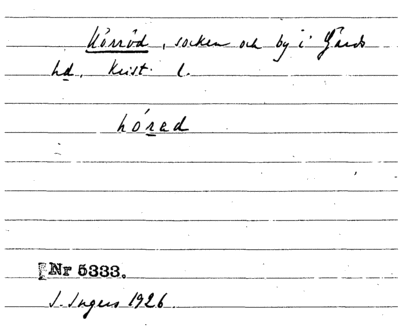 Hörröd, socken och by i Gärds
hd, Krist. l.
hórad
Nr 5333.
I. Ingers 1926.